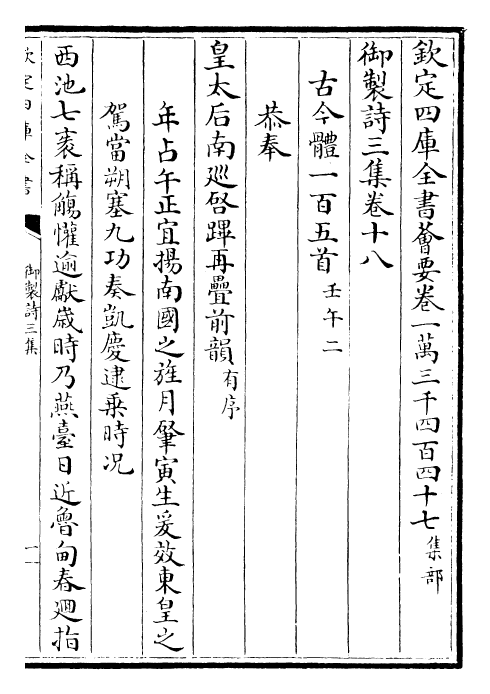 欽定四庫全書薈要卷一萬三千四百四十七集部
御製詩三集卷十八
古今體一百五首壬午二
恭奉
皇太后南廵啓蹕再疊前韻有序
年占午正宜揚南國之旌月肇寅生爰效東皇之
駕當朔塞九功奏凱慶逮乗時况
西池七袠稱觴懽逾獻歲時乃燕臺日近魯甸春廻指
欽定四庫全書
御製詩三集
一